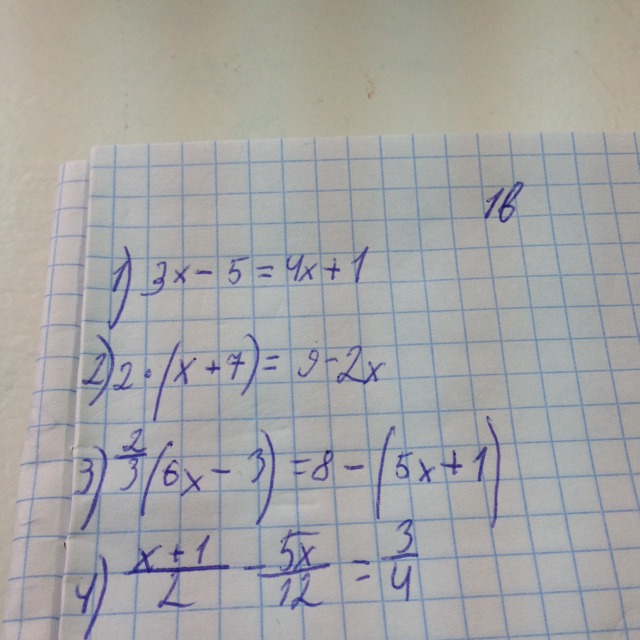 1в
1) 3x - 5 = 4x + 1
2) 2 · (x + 7) = 9 - 2x
3) 2/3 (6x - 3) = 8 - (5x + 1)
4) (x + 1)/2 - 5x/12 = 3/4